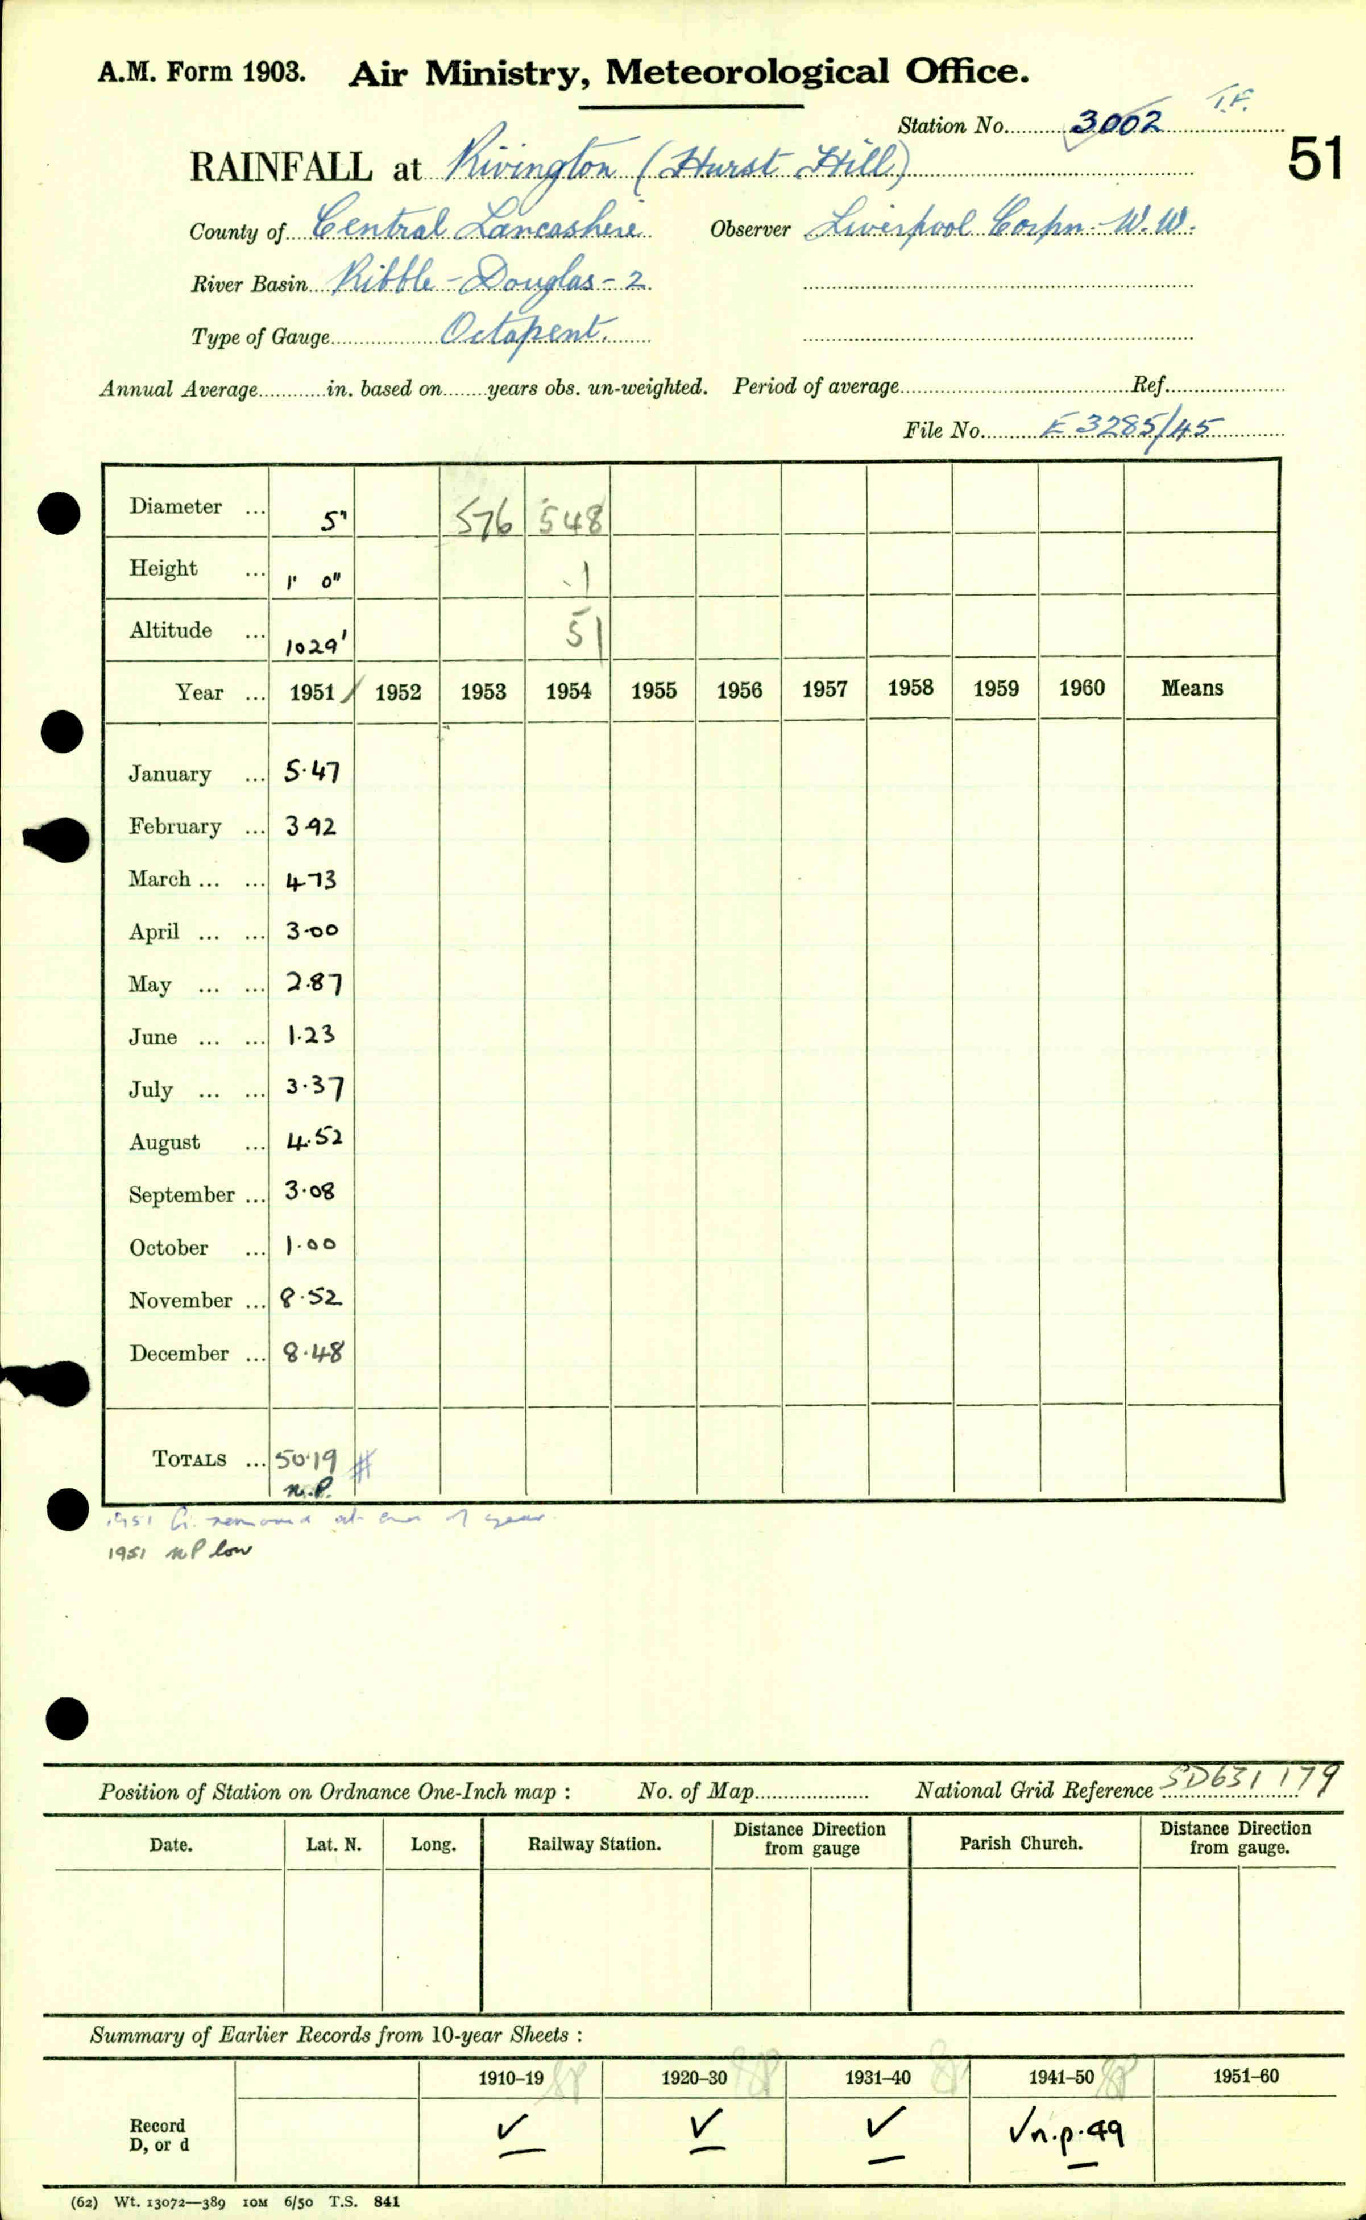 A.M. Form 1903. Air Ministry, Meteorological Office.
Station No. 3002 T.F.
51
RAINFALL at Rivington (Hurst Hill)
County of Central Lancashire Observer Liverpool Corpn. W.W.
River Basin Ribble - Douglas - 2.
Type of Gauge Octapent.
Annual Average............in. based on........years obs. un-weighted. Period of average............Ref............
File No. E 3285/45
Diameter ... 5" 576 548
Height ... 1' 0" .1
Altitude ... 1029' 51
Year ... 1951 / 1952 1953 1954 1955 1956 1957 1958 1959 1960 Means
January ... 5.47
February ... 3.92
March ... ... 4.73
April ... ... 3.00
May ... ... 2.87
June ... ... 1.23
July ... ... 3.37
August ... 4.52
September ... 3.08
October ... 1.00
November ... 8.52
December ... 8.48
TOTALS ... 50.19 #
n.P.
1951 G. removed at end of year.
1951 nP low
Position of Station on Ordnance One-Inch map : No. of Map.......... National Grid Reference SD631179
Date. Lat. N. Long. Railway Station. Distance Direction from gauge Parish Church. Distance Direction from gauge.
Summary of Earlier Records from 10-year Sheets :
1910–19 1920–30 1931–40 1941–50 1951–60
Record D, or d ✓ ✓ ✓ ✓n.p.49
(62) Wt. 13072—389 10M 6/50 T.S. 841